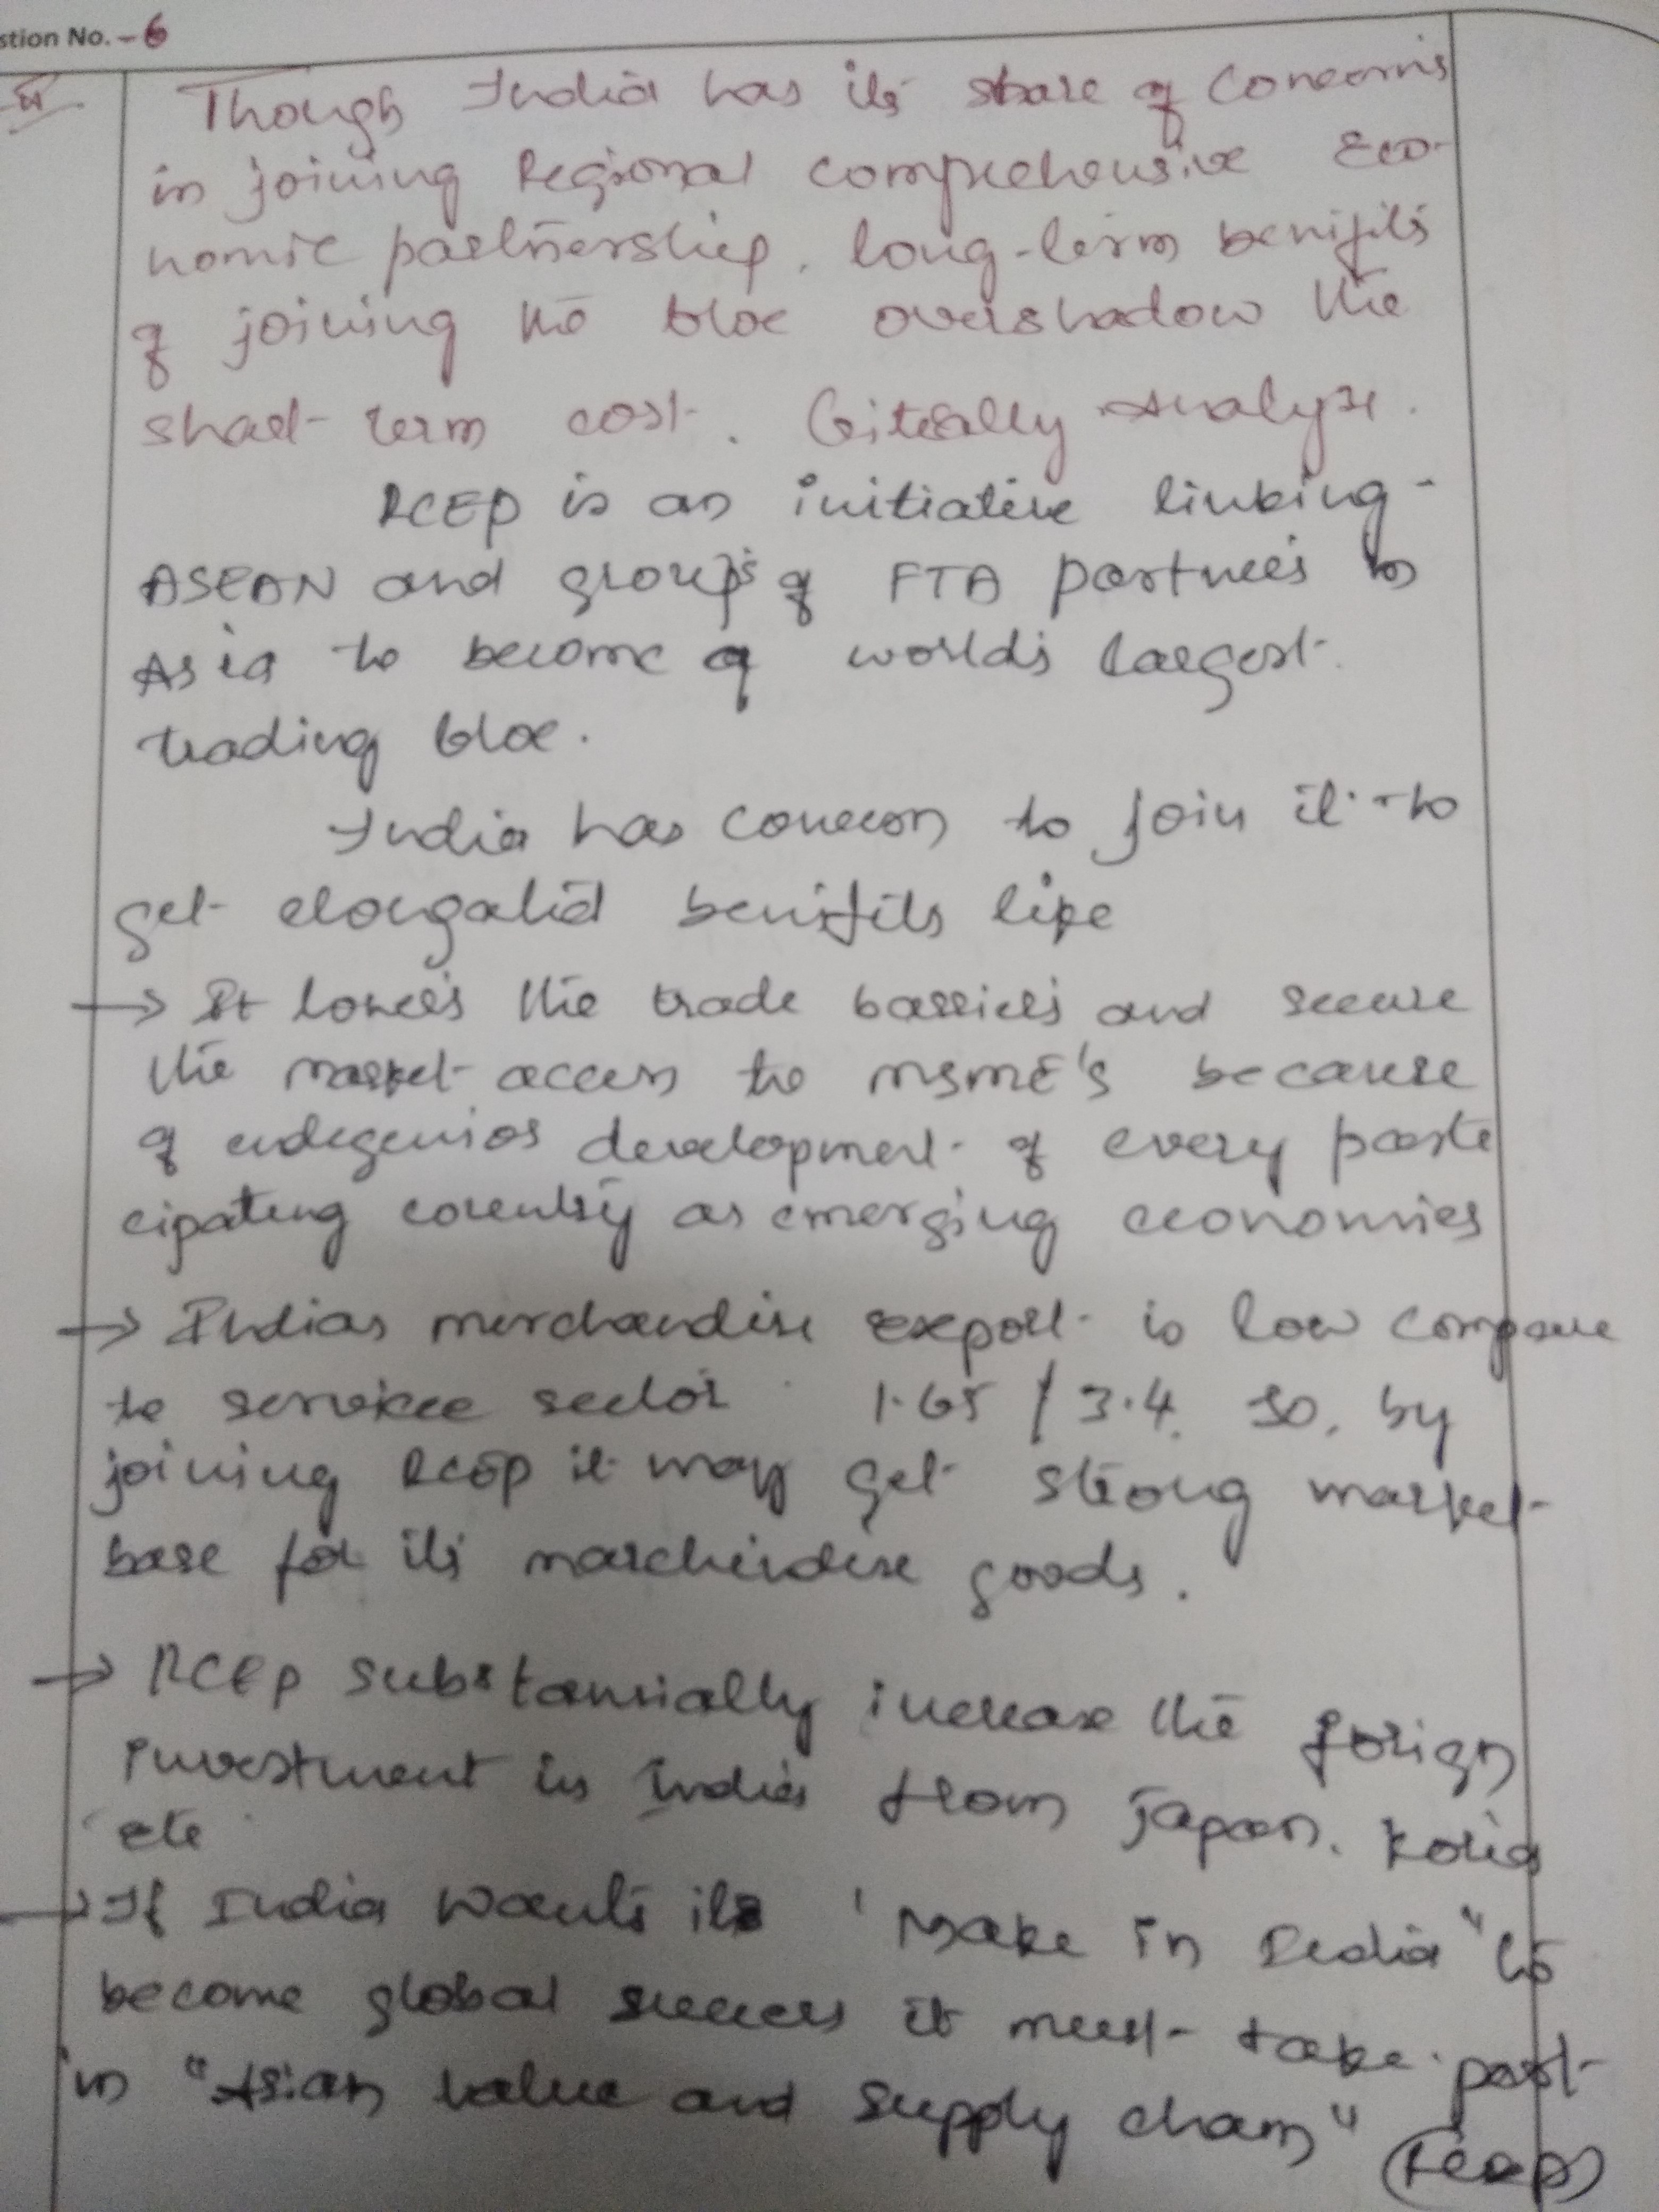 stion No. - 6
Though India has its share of Concerns
in joining Regional comprehensive Eco-
nomic partnership, long-term benifits
of joining the bloc overshadow the
short-term cost. Critically Analyze.
RCEP is an initiative linking
ASEAN and groups of FTA partners in
Asia to become of world's largest
trading bloc.
India has concern to join it to
get elongated benifits like
→ It lowers the trade barriers and secure
the market access to MSME's because
of endegenios development of every parti
cipating country as emerging economies
→ Indias merchandise export is low compare
to service sector 1.65 / 3.4. So, by
joining RCEP it may get strong market
base for its marchindise goods.
→ RCEP substansially increase the forign
investment in India from Japan, Koria
etc
→ If India wants its 'Make in India" to
become global success it must take part
in "Asian value and supply chain"